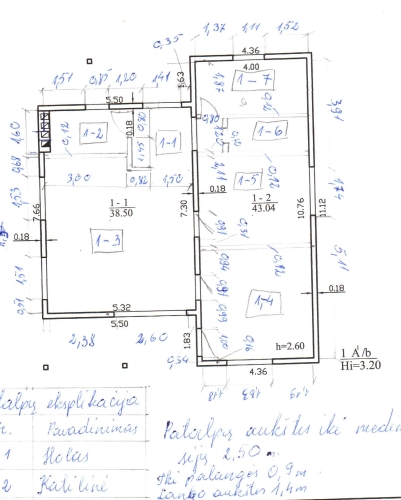 1,37 1,11 1,52
4.36
4.00
0,35
1,51 0,85 1,20 1,41
5.50
1.63
1,87
1-7
0,12
3,91
1,60
0,12
1-2
0.18
0,80
1-1
0,80
1-6
0,68
1,45
3,00 0,82 1,50
2,11
1-5
0,12
1,74
0.18
1,53
7.66
1 - 1
38.50
7.30
1 - 2
43.04
10.76
11.12
0.18
1-3
0,31
5,11
0,94
0,12
1,51
0,91
0,99
1,4
0.18
0,51
5.32
5.50
2,38 2,60
1.83
0,34
0,16
h=2.60
4.36
1 A/b
Hi=3.20
alpų eksplikacija
r. Pavadinimas
1 Holas
2 Katilinė
Patalpų aukštis iki medin
sijų 2,50 m.
Iki palangės 0,9 m
Lango aukštis 1,4m